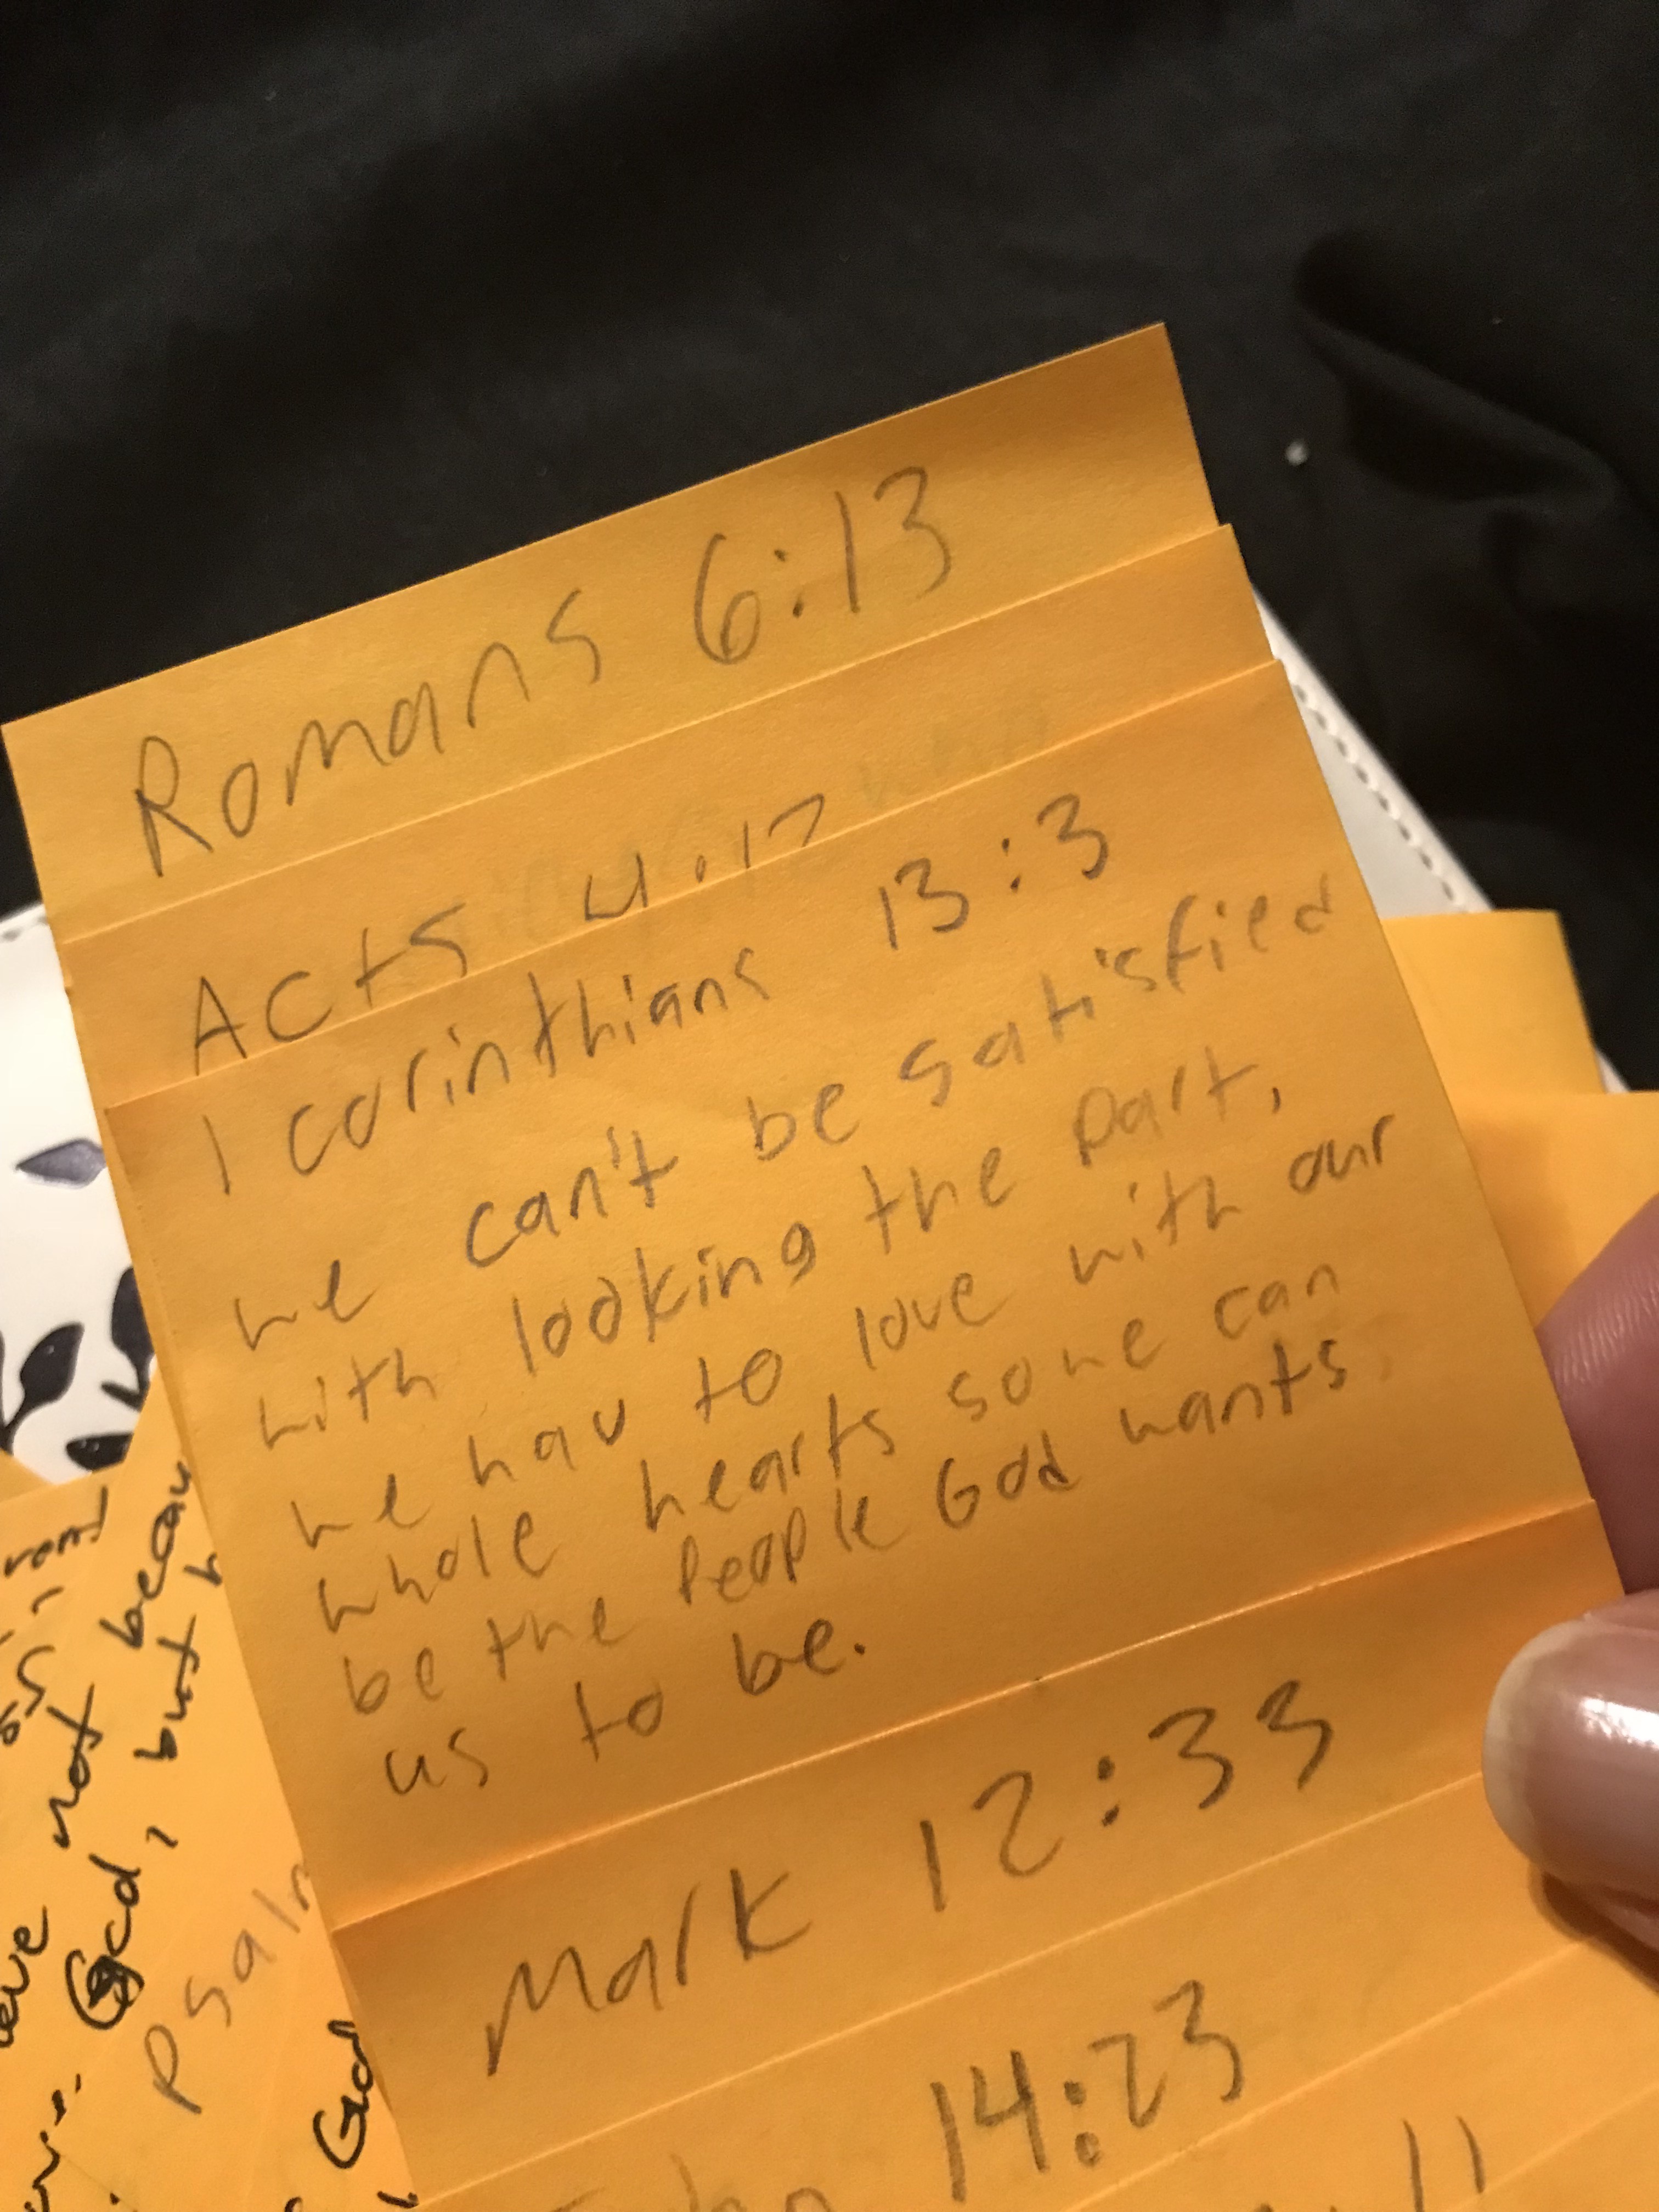 Romans 6:13
Acts 4:12
1 corinthians 13:3
we can't be satisfied
with looking the part,
we hav to love with our
whole hearts so we can
be the people God wants
us to be.
Mark 12:33
14:23
11
not becau
God, but h
Psalm
God